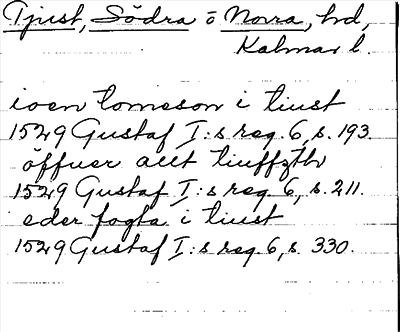 Tjust, Södra o Norra, hd,
Kalmar l.
ioen tomeson i tiust
1529 Gustaf I:s reg. 6, s. 193.
öffuer allt tiuffzth
1529 Gustaf I:s reg. 6, s. 211.
eder fogta i tiust
1529 Gustaf I:s reg. 6, s. 330.